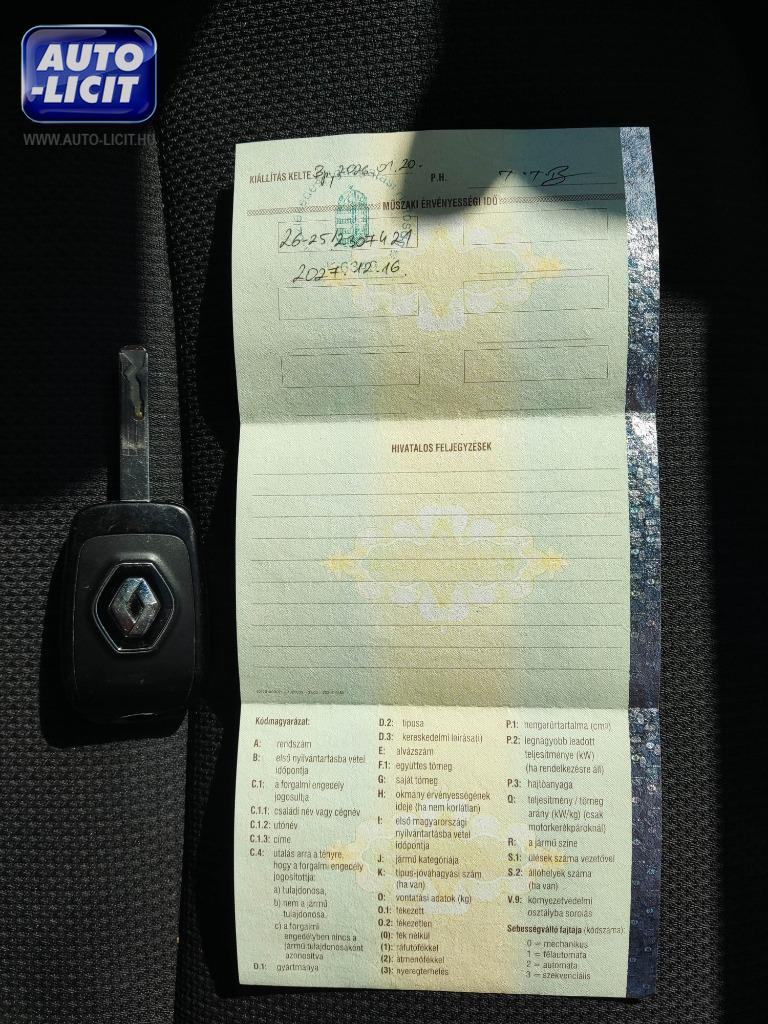 AUTO
-LICIT
WWW.AUTO-LICIT.HU
KIÁLLÍTÁS KELTE Bp, 2026.01.20. P.H.
MŰSZAKI ÉRVÉNYESSÉGI IDŐ
26-25/2307421
2027.12.16.
HIVATALOS FELJEGYZÉSEK
Kódmagyarázat:
A: rendszám
B: első nyilvántartásba vétel
időpontja
C.1: a forgalmi engedély
jogosultja
C.1.1: családi név vagy cégnév
C.1.2: utónév
C.1.3: címe
C.4: utalás arra a tényre,
hogy a forgalmi engedély
jogosítottja:
a) tulajdonosa,
b) nem a jármű
tulajdonosa,
c) a forgalmi
engedélyben nincs a
jármű tulajdonosaként
azonosítva
D.1: gyártmánya
D.2: típusa
D.3: kereskedelmi leírás(ai)
E: alvázszám
F.1: együttes tömeg
G: saját tömeg
H: okmány érvényességének
ideje (ha nem korlátlan)
I: első magyarországi
nyilvántartásba vétel
időpontja
J: jármű kategóriája
K: típus-jóváhagyási szám
(ha van)
O: vontatási adatok (kg)
O.1: fékezett
O.2: fékezetlen
(0): fék nélkül
(1): ráfutófékkel
(2): átmenőfékkel
(3): nyeregterhelés
P.1: hengerűrtartalma (cm³)
P.2: legnagyobb leadott
teljesítménye (kW)
(ha rendelkezésre áll)
P.3: hajtóanyaga
Q: teljesítmény / tömeg
arány (kW/kg) (csak
motorkerékpároknál)
R: a jármű színe
S.1: ülések száma vezetővel
S.2: állóhelyek száma
(ha van)
V.9: környezetvédelmi
osztályba sorolás
Sebességváltó fajtája (kódszáma):
0 = mechanikus
1 = félautomata
2 = automata
3 = szekvenciális